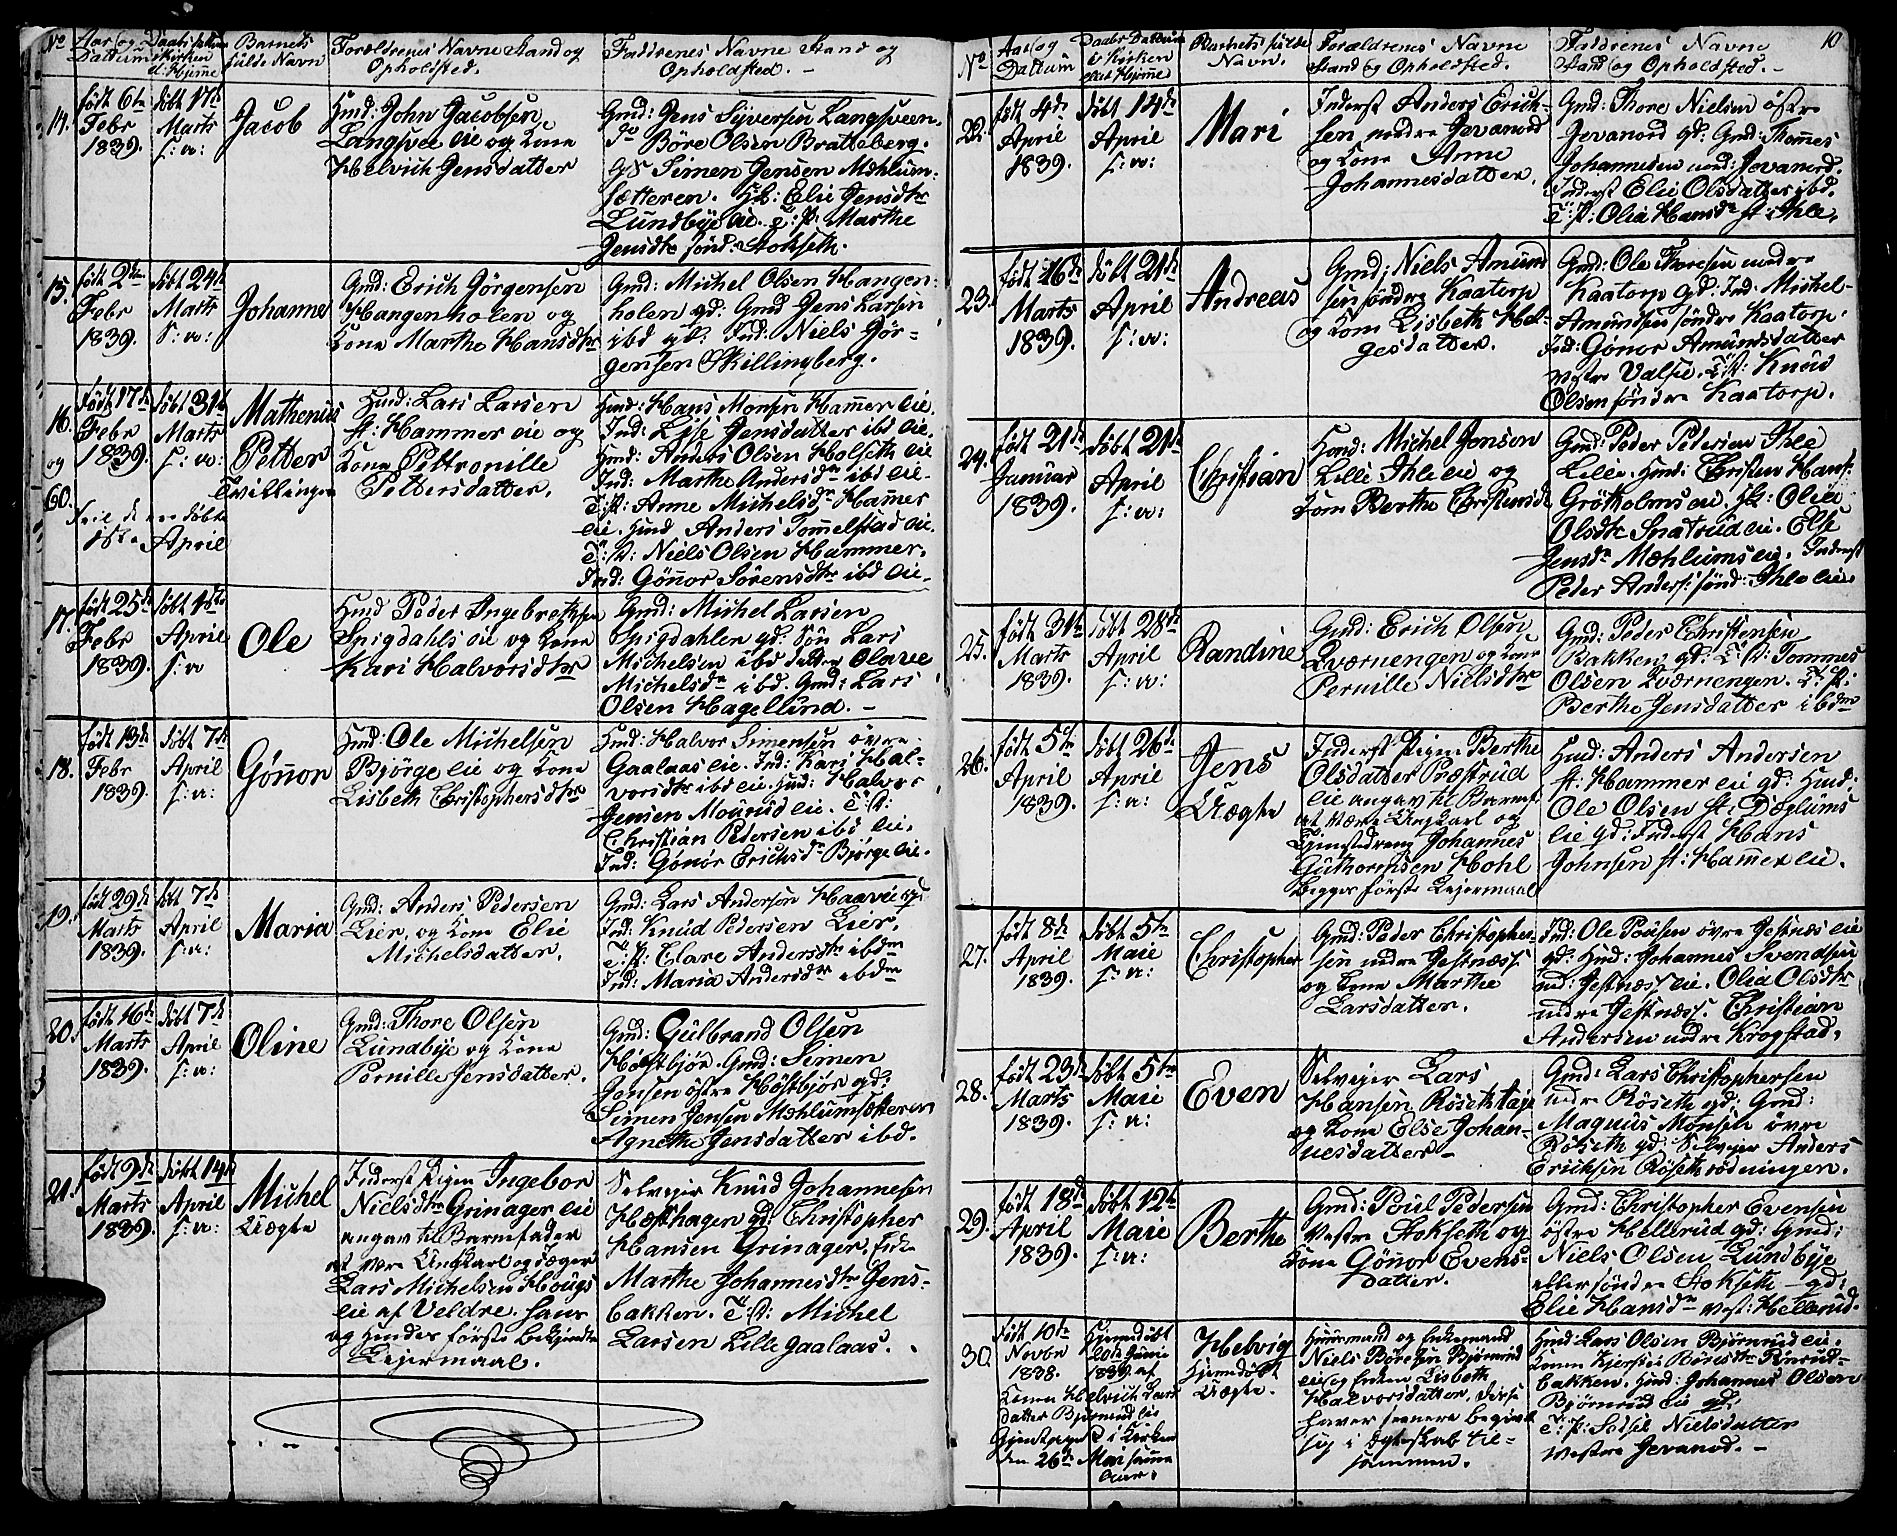 No
Aar og Dattum
Daabs Dattum i Kirken el: Hjeme
Barnets fulde Navn
Forældrenes Navne Stand og Opholdsted.
Faddrenes Navne Stand og Opholdsted. –
14.
født 6te
Febr
1839.
døbt 17de
Marts
s: a:
Jacob
Hmd: John Jacobsen
Langsvee eie og Kone
Helvich Jensdatter
Gmd: Jens Syversen Langsveen.
do Børe Olsen Bratteberg.
Simen Jensen Mæhlum-
sætteren. Elie Jensdtr
Lundbye eie. T: P: Marthe
Jensdtr sønd: Stokseth.
15.
født 2den
Febr
1839.
døbt 24de
Marts
s: a:
Johanne
Gmd: Erich Jørgensen
Hangenholen og
Kone Marthe Hansdtr
Gmd: Michel Olsen Hangen-
holen gd: Gmd Jens Larsen
ibd gd: Ind: Niels Jør-
gensen Skillingberg.
16.
og
født 17de
Febr
1839.
døbt 31te
Marts
s: a:
April
Mathenius
Petter
Tvillinger
Hmd: Lars Larsen
st: Hammer eie og
Kone Pettronille
Pettersdatter.
Hmd: Hans Monsen Hammer eie.
Ind: Lise Jensdatter ibd eie.
Hmd: Anders Olsen Holseth eie
Ind: Marthe Andersdr ibd eie.
T: P: Anne Michelsdr Hammer
eie. Hmd Anders Tommelstad eie.
T: P: Niels Olsen Hammer.
Ind: Gønnor Sørensdtr ibd eie.
17.
født 25de
Febr
1839.
døbt
April
s: a
Ole
Hmd Peder Ingebretsen
Spigdahls eie og Kone
Kari Halvorsdtr
Gmd: Michel Larsen
Spigdahlen gd. Søn Lars
Michelsen ibd Olave
Michelsdr ibd. Gmd: Lars
Olsen Hagellund. –
18.
født 13de
Febr
1839.
døbt 7de
April
s: a:
Gønnor
Hmd: Ole Michelsen
Bjørge eie og Kone
Lisbeth Christophersdtr
Hmd: Halvor Simensen øvre
Gaalaas eie. Ind: Kari Hal-
vorsdtr ibd eie. Hmd: Halvor
Jensen eie. T: P:
Christian Pedersen ibd eie.
Ind: Gønor Erichsdr Bjørge eie.
19.
født 29de
Marts
1839.
døbt 7de
April
s: a:
Maria
Gmd: Anders Pedersen
Lier, og Kone Elie
Michelsdatter.
Gmd: Lars Andersøn Haavie gd
Ind: Knud Pedersen Lier.
T: P: Clare Andersdtr ibdm
Ind: Maria Andersdr ibdm
20.
født 16de
Marts
1839.
døbt 7de
April
s: a:
Oline
Gmd: Thore Olsen
Lundbye og Kone
Pernille Jensdatter.
Gmd: Gulbrand Olsen
Høstbjør. Gmd: Simen
Jensen østre Høstbjør gd:
Simen Jensen Mæhlumsætteren
Agnethe Jensdatter ibd.
21.
født 9de
Marts
1839.
døbt 14de
April
s: a:
Michel
Uægte
Inderst Pigen Ingebor
Nielsdtr Grinager eie
angav til Barnefader
at være Ungkarl og Jæger
Lars Michelsen Hougs
eie af Veldre. Hans
og Hendes første bekjendte
Leiermaal.
Selveier Knud Johannesen
Hæsthagen gd: Christopher
Hansen Grinager. Enke
Marthe Johannesdtr Jens-
bakken. T: P: Michel
Larsen Lille Gaalaas.
10
No
Aar og Dattum
Daabs Dattum i Kirken eller Hjeme
Barnets fulde Navn.
Forældrenes Navne Stand og Opholdsted.
Faddrenes Navne Stand og Opholdsted. –
22.
født 4de
April
1839.
døbt 14de
April
s: a:
Mari
Inderst Anders Erich-
sen nedre Jevanord
og Kone Anne
Johannesdatter.
Gmd: Thore Nielsen østre
Jevanord gd: Gmd: Thommes
Johannesen ned: Jevanord.
Inderst Elie Olsdatter ibd.
T: P: Olia Hansdr st: Ihle.
23.
født 16de
Marts
1839.
døbt 21de
April
s: a:
Andreas
Gmd: Niels Amund
sen søndre Kaatorp
og Kone Lisbeth Hel-
gesdatter.
Gmd: Ole Thoresen nedre
Kaatorp gd: Ind: Michel
Amundsen søndre Kaatorp.
Ind: Gønor Amundsdatter
vestre Valsie. T: P: Knud
Olsen søndre Kaatorp.
24.
født 21de
Januar
1839.
døbt 21de
April
s: a:
Christian
Hmd: Michel Jensen
Lille Ihle eie og
Kone Berthe Christensdr
Gmd: Peder Pedersen Ihle
Lille. Hmd: Christen Hans:
Grøtholms eie. Olia
Olsdtr Snatrud eie. Else
Jensdr Mæhlums eie. Inderst
Peder Anders: sønd: Ihle eie.
25.
født 31te
Marts
1839.
døbt 28de
April
s: a:
Randine
Gmd: Erich Olsen
Qværnengen og Kone
Pernille Nielsdtr
Gmd: Peder Christensen
Bakken gd: T: P: Tommes
Olsen Qværnengen. T: P:
Berthe Jensdatter ibdm
26.
født 5te
April
1839.
døbt 26de
April
s: a:
Jens
Uægte
Inderst Pigen Berthe
Olsdatter Præstrud
eie angav til Barnef:
at være Ungkarl og
Tjenestedreng Johannes
Guthormsen Hohl
begges første Leiermaal
Hmd: Anders Andersen
st: Hammer eie gd: Hmd:
Ole Olsen st: Døglums
eie gd: Inderst Hans
Johnsen st: Hammer eie.
27.
født 8de
April
1839.
døbt 5te
Maie
s: a:
Christopher
Gmd: Peder Christopher-
sen nedre Jestnæss.
og Kone Marthe
Larsdatter.
Ind: Ole Poulsen øvre Jestnæs eie
gd: Hmd: Johannes Svendsen
ned: Jestnæss eie. Olia Olsdtr
nedre Jestnæss. Christian
Andersen nedre Krogstad.
28.
født 23de
Marts
1839.
døbt 5te
Maie
s: a:
Even
Selveier Lars
Hansen Røseth
og Kone Else Johan-
nesdatter –
Gmd: Lars Christophersen
nedre Røseth gd: Gmd:
Magnus Monsen øvre
Røseth gd: Selveier Anders
Ericksen Røsethrødningen.
29.
født 18de
April
1839.
døbt 12te
Maie
s: a:
Berthe
Gmd: Poul Pedersen
vestre Stokseth og
Kone Gønor Evens-
datter.
Gmd: Christopher Evensen
østre Hellerud gd: Gmd:
Niels Olsen Lundbye
eller søndre Stokseth gd:
Elie Hansdr vest: Hellerud.
30.
født 10de
Novbr
1838.
Hjemedøbt
1839. af
Konen Helvich Lars
datter Bjørnerud eie
i Kirken
den 26de Mai samme
Aar.
Helvig
Hjemedøbt
Uægte.
Huusmand og Enkemand
Niels Børesen Bjørnerud
eie og Enken Lisbeth
Halvorsdatter, disse
haver senere begivet
sig i Ægteskab til-
sammen.
Hmd: Lars Olsen Bjørnerud eie.
Konen Kjersti Børesdtr
bakken. Hmd: Johannes Olsen
Bjørnerud eie gd:
T: P: Sidsel Nielsdatter
vestre Jevanord. –